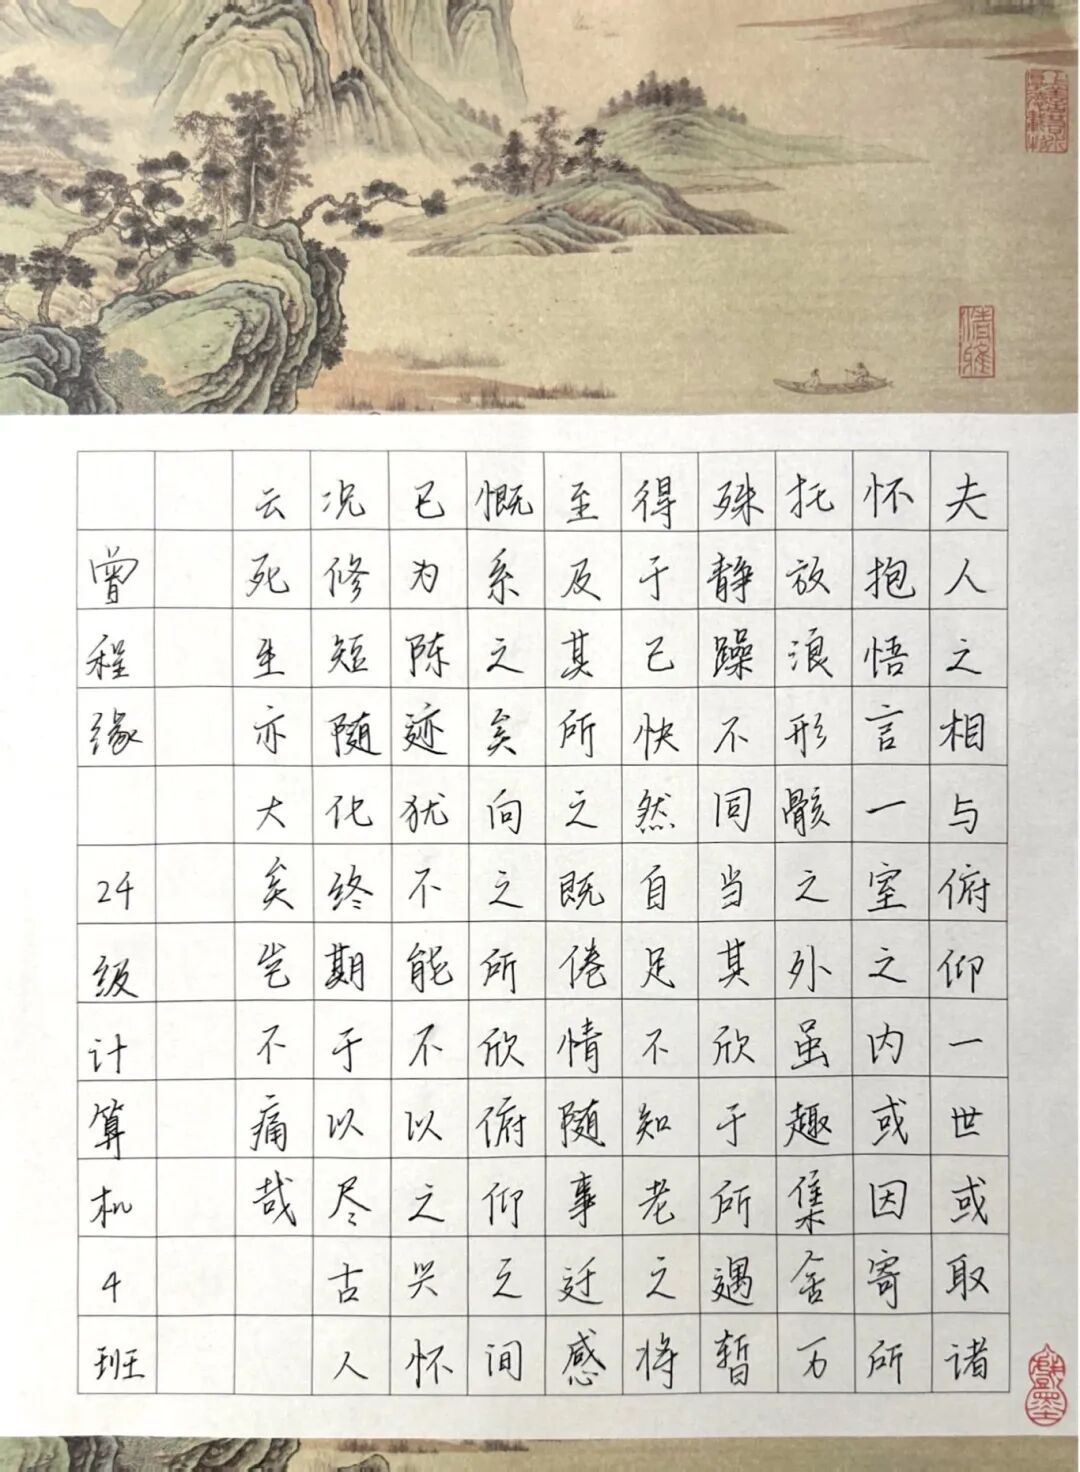 夫人之相与俯仰一世或取诸
怀抱悟言一室之内或因寄所
托放浪形骸之外虽趣集舍万
殊静躁不同当其欣于所遇暂
得于己快然自足不知老之将
至及其所之既倦情随事迁感
慨系之矣向之所欣俯仰之间
已为陈迹犹不能不以之兴怀
况修短随化终期于以尽古人
云死生亦大矣岂不痛哉
曾程缘 24级计算机4班
上善若水
厚德载物
清雅